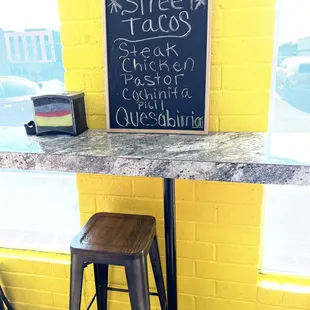 Street
Tacos
Steak
Chicken
Pastor
Cochinita
pibil
Quesabirrias